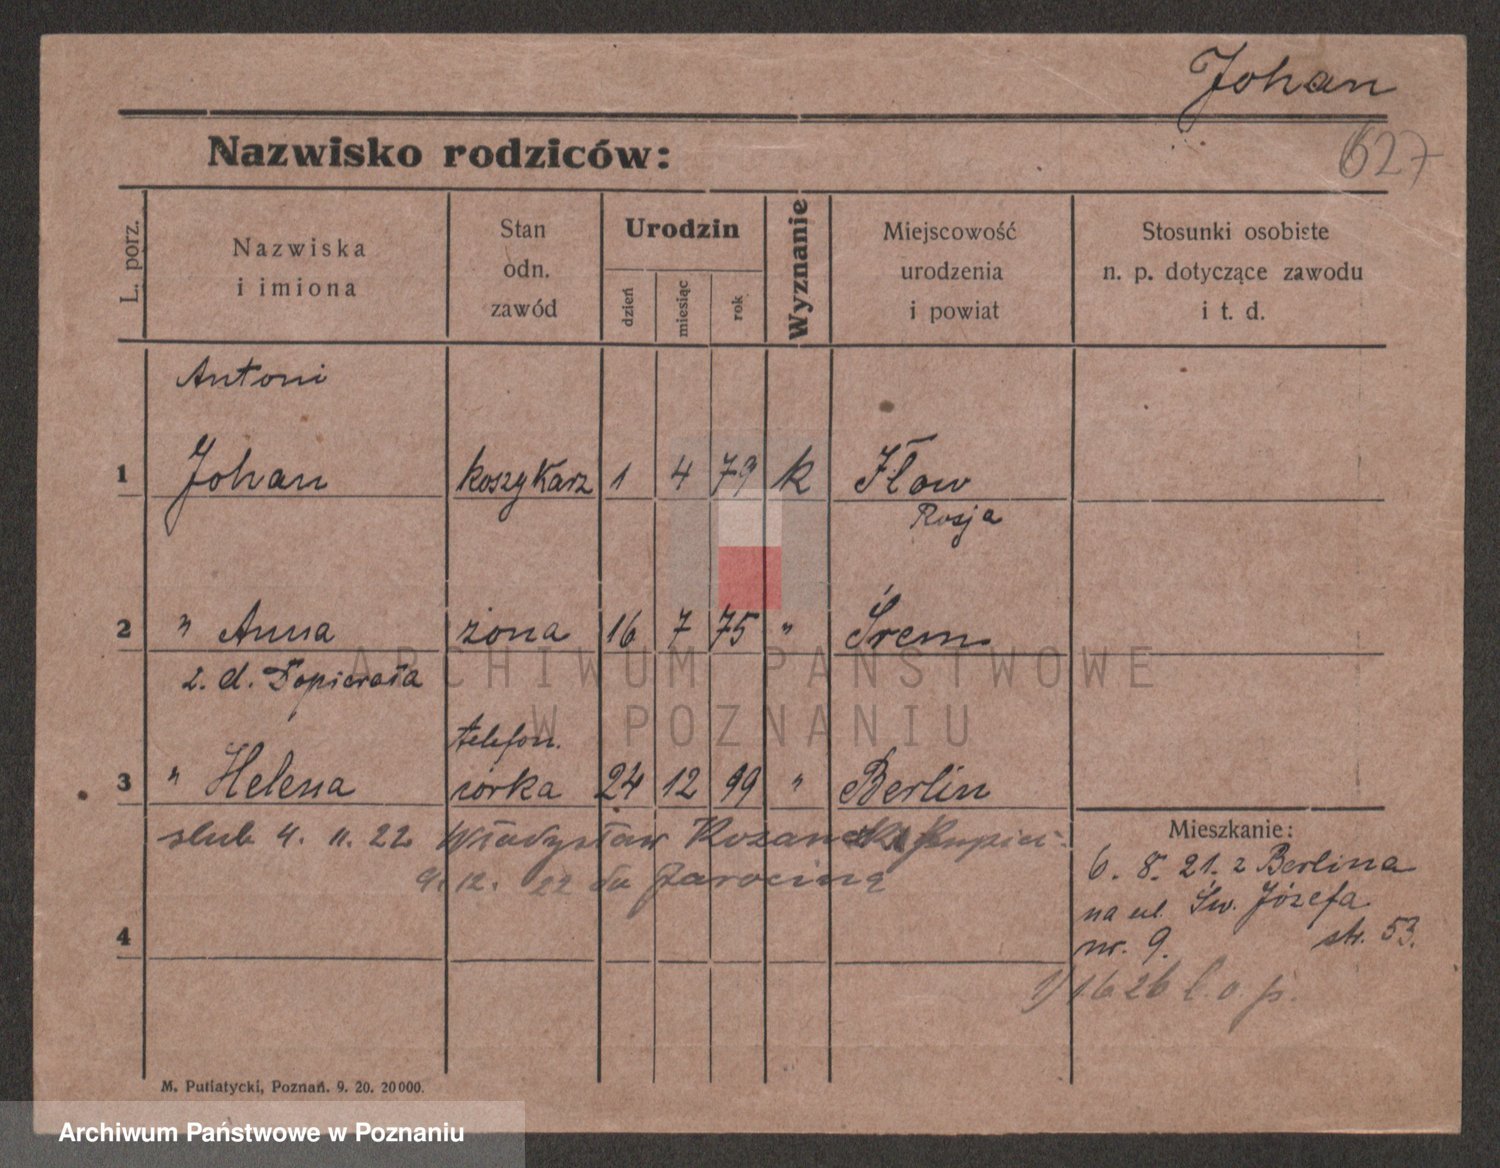 Johan
627
Nazwisko rodziców:
L. porz.
Nazwiska
i imiona
Stan
odn.
zawód
Urodzin
dzień
miesiąc
rok
Wyznanie
Miejscowość
urodzenia
i powiat
Stosunki osobiste
n. p. dotyczące zawodu
i t. d.
Antoni
1 Johan koszykarz 1 4 79 k Iłow
Rosja
2 " Anna żona 16 7 75 " Śrem
z. d. Dopierała
telefon.
3 " Helena córka 24 12 99 " Berlin
slub 4. 11. 22 Władysław
9. 12. 22 do Jarocina
4
Mieszkanie:
6. 8. 21. z Berlina
na ul. Św. Józefa
nr. 9. str. 53.
1626 l. o. p.
M. Putiatycki, Poznań. 9. 20. 20000.
ARCHIWUM PAŃSTWOWE
W POZNANIU
Archiwum Państwowe w Poznaniu